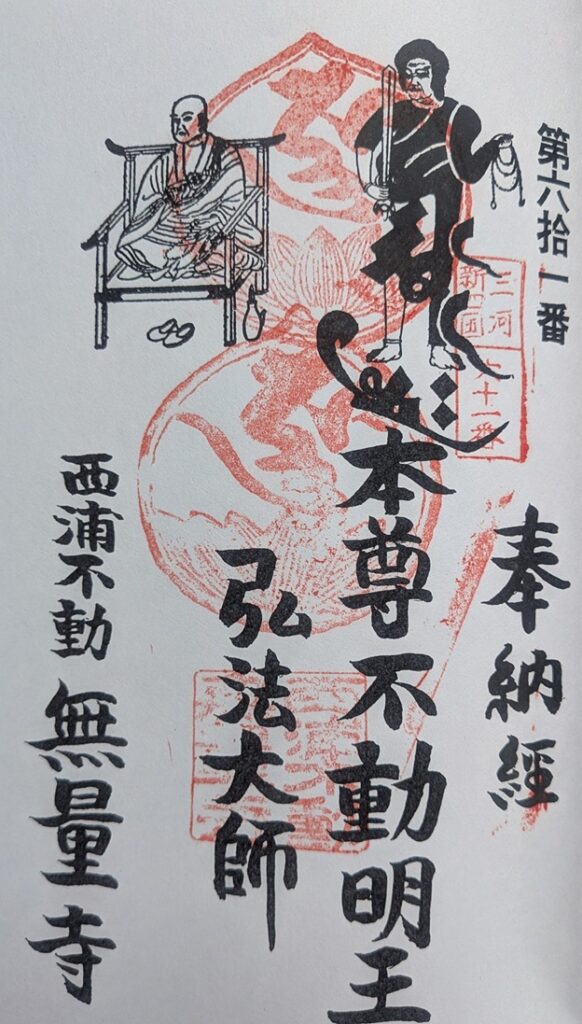 第六拾一番
奉納経
三河
新四国
六十一番
本尊不動明王
弘法大師
西浦不動 無量寺